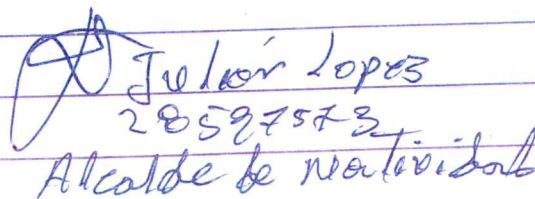 Julián Lopez
28597573
Alcalde de Natividad